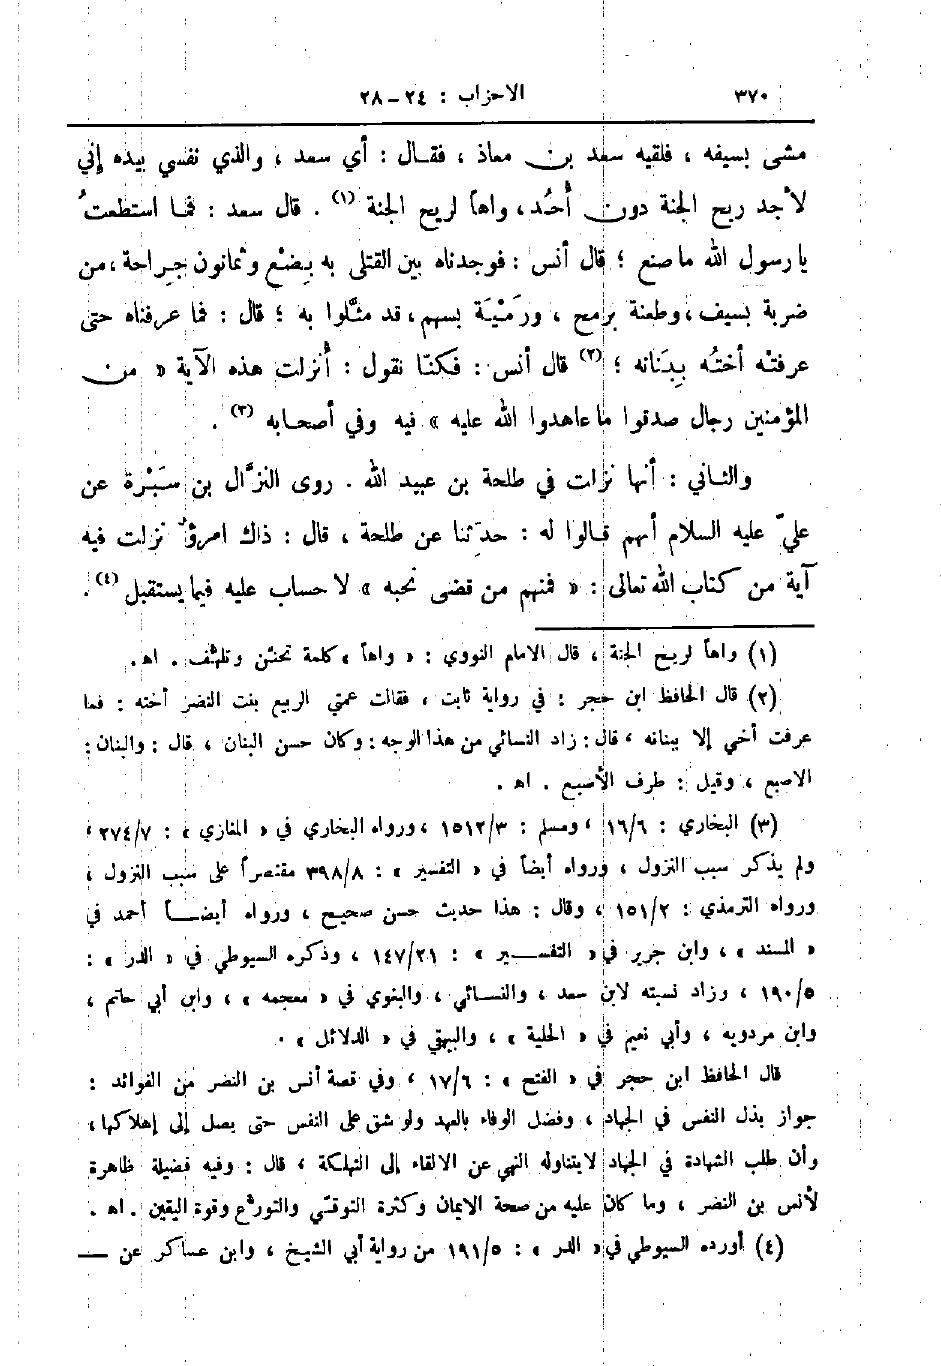 ٣٧٠
الاحزاب : ٢٤ – ٢٨
مشى بسيفه ، فلقيه سعد بن معاذ ، فقال : أي سعد ، والذي نفسي بيده إني
لأجد ريح الجنة دون أُحُد ، واهاً لريح الجنة (١) . قال سعد : فما استطعتُ
يا رسول الله ما صنع ؛ قال أنس : فوجدناه بين القتلى به بِضْع وثمانون جِراحة ، من
ضربة بسيف ، وطعنة برمح ، ورَمْيَة بسهم ، قد مثَّلوا به ؛ قال : فما عرفناه حتى
عرفتْه أختُه بِبَنانه ؛ (٢) قال أنس : فكنّا نقول : أُنزلت هذه الآية « من
المؤمنين رجال صدقوا ما عاهدوا الله عليه » فيه وفي أصحابه (٣) .
والثاني : أنها نزلت في طلحة بن عبيد الله . روى النزَّال بن سَبْرة عن
عليّ عليه السلام أنهم قالوا له : حدِّثنا عن طلحة ، قال : ذاك امرؤٌ نزلت فيه
آية من كتاب الله تعالى : « فمنهم من قضى نحبه » لا حساب عليه فيما يستقبل (٤) .
(١) واهاً لريح الجنة ، قال الامام النووي : « واهاً » كلمة تحنّن وتلهّف . اهـ .
(٢) قال الحافظ ابن حجر : في رواية ثابت ، فقالت عمتي الربيع بنت النضر أخته : فما
عرفت أخي إلا ببنانه ، قال : زاد النسائي من هذا الوجه : وكان حسن البنان ، قال : والبنان :
الاصبع ، وقيل : طرف الأصبع . اهـ .
(٣) البخاري : ١٦/٦ ، ومسلم : ١٥١٢/٣ ، ورواه البخاري في « المغازي » : ٢٧٤/٧ ،
ولم يذكر سبب النزول ، ورواه أيضاً في « التفسير » : ٣٩٨/٨ مقتصراً على سبب النزول ،
ورواه الترمذي : ١٥١/٢ ، وقال : هذا حديث حسن صحيح ، ورواه أيضاً أحمد في
« المسند » ، وابن جرير في « التفسير » : ١٤٧/٢١ ، وذكره السيوطي في « الدر » :
١٩٠/٥ ، وزاد نسبته لابن سعد ، والنسائي ، والبغوي في « معجمه » ، وابن أبي حاتم ،
وابن مردويه ، وأبي نعيم في « الحلية » ، والبيهقي في « الدلائل » .
قال الحافظ ابن حجر في « الفتح » : ١٧/٦ ، وفي قصة أنس بن النضر من الفوائد :
جواز بذل النفس في الجهاد ، وفضل الوفاء بالعهد ولو شق على النفس حتى يصل إلى إهلاكها ،
وأن طلب الشهادة في الجهاد لا يتناوله النهي عن الالقاء إلى التهلكة ، قال : وفيه فضيلة ظاهرة
لأنس بن النضر ، وما كان عليه من صحة الايمان وكثرة التوقّي والتورّع وقوة اليقين . اهـ .
(٤) أورده السيوطي في « الدر » : ١٩١/٥ من رواية أبي الشيخ ، وابن عساكر عن —